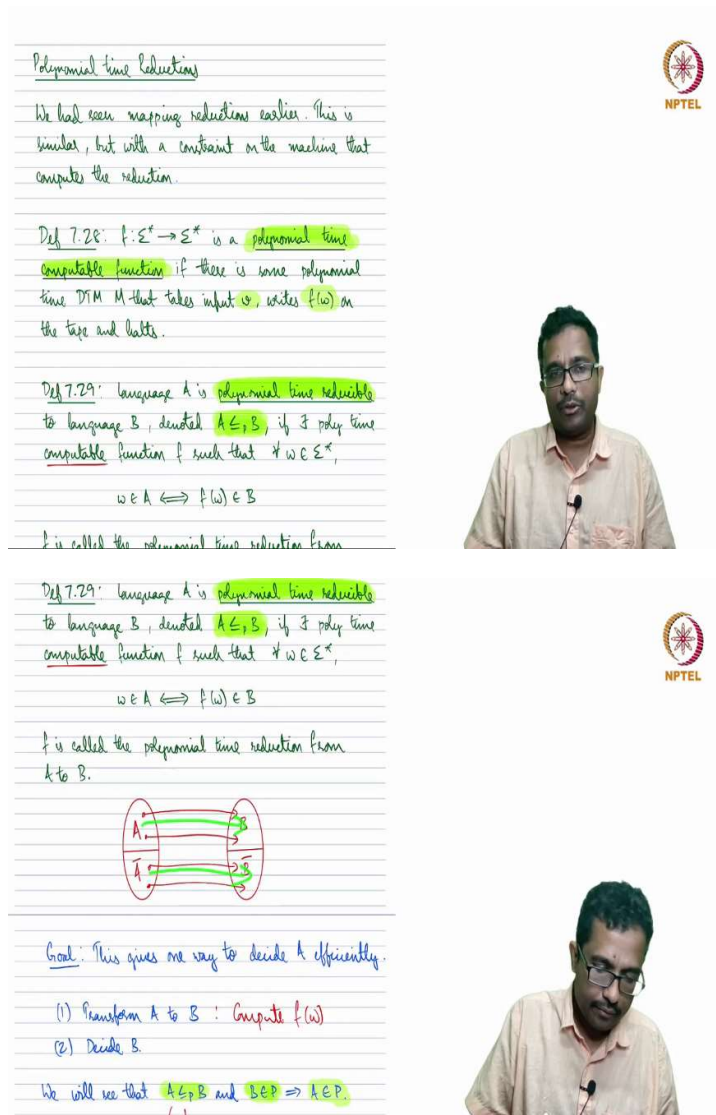 Polynomial time Reductions
NPTEL
We had seen mapping reductions earlier. This is
similar, but with a constraint on the machine that
computes the reduction.
Def 7.28: f: Σ* → Σ* is a polynomial time
computable function if there is some polynomial
time DTM M that takes input w, writes f(w) on
the tape and halts.
Def 7.29: Language A is polynomial time reducible
to language B, denoted A ≤p B, if ∃ poly time
computable function f such that ∀ w ∈ Σ*,
w ∈ A ⟺ f(w) ∈ B
f is called the polynomial time reduction from
Def 7.29: Language A is polynomial time reducible
to language B, denoted A ≤p B, if ∃ poly time
NPTEL
computable function f such that ∀ w ∈ Σ*,
w ∈ A ⟺ f(w) ∈ B
f is called the polynomial time reduction from
A to B.
A B
A̅ B̅
Goal: This gives one way to decide A efficiently.
(1) Transform A to B : Compute f(w)
(2) Decide B.
We will see that A ≤p B and B ∈ P ⇒ A ∈ P.